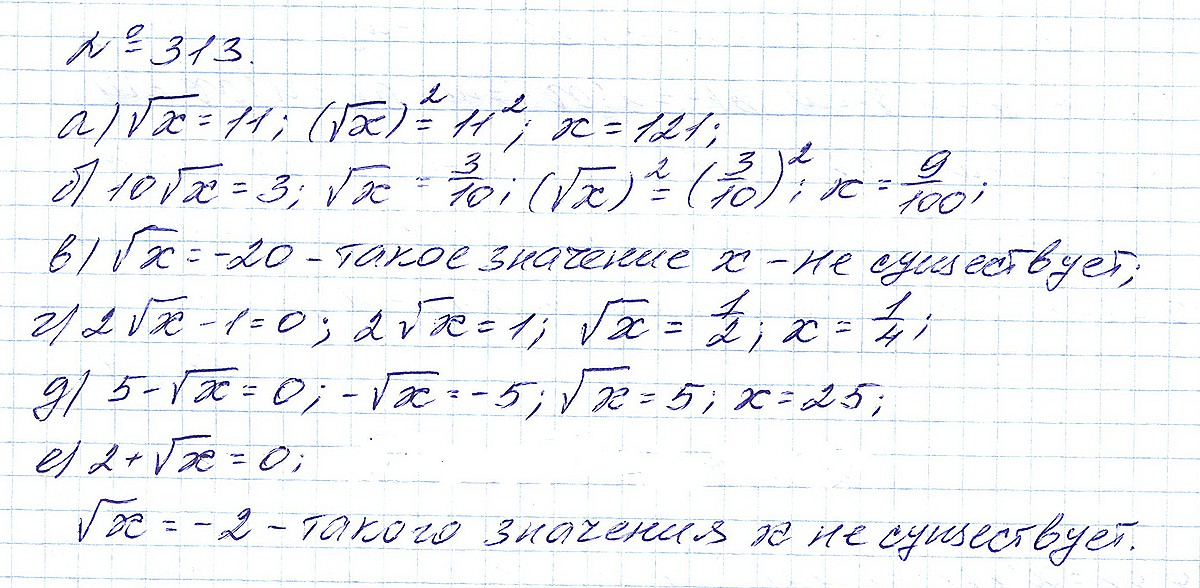 № 313.
а) √x = 11; (√x)² = 11²; x = 121;
б) 10√x = 3; √x = 3/10; (√x)² = (3/10)²; x = 9/100;
в) √x = -20 - такое значение x - не существует;
г) 2√x - 1 = 0; 2√x = 1; √x = 1/2; x = 1/4;
д) 5 - √x = 0; -√x = -5; √x = 5; x = 25;
е) 2 + √x = 0;
√x = -2 - такого значения x не существует.